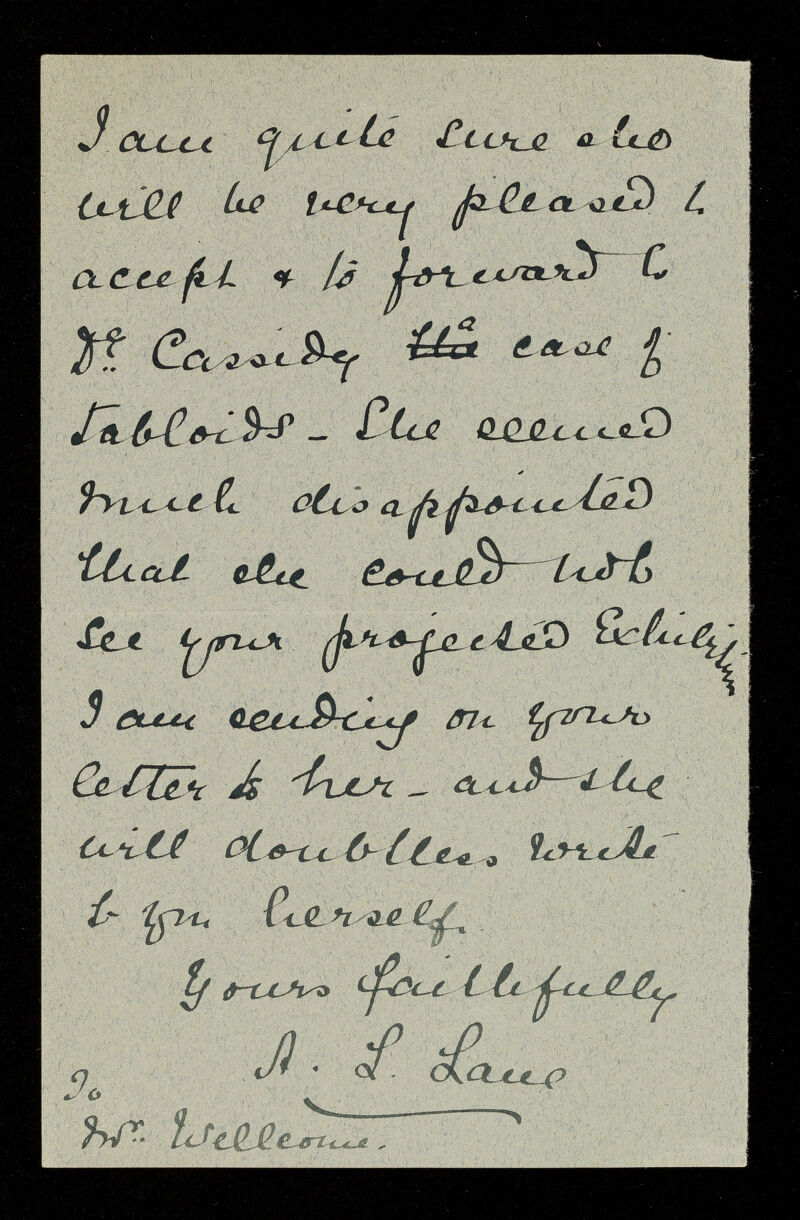 I am quite sure she
will be very pleased to
accept & to forward to
Dr. Cassidy the a case of
tabloids - She seemed
much disappointed
that she could not
see your projected Exhibition
I am sending on your
letter to her - and she
will doubtless write
to you herself.
Yours faithfully
A. L. Lane
To
Mr. Wellcome.